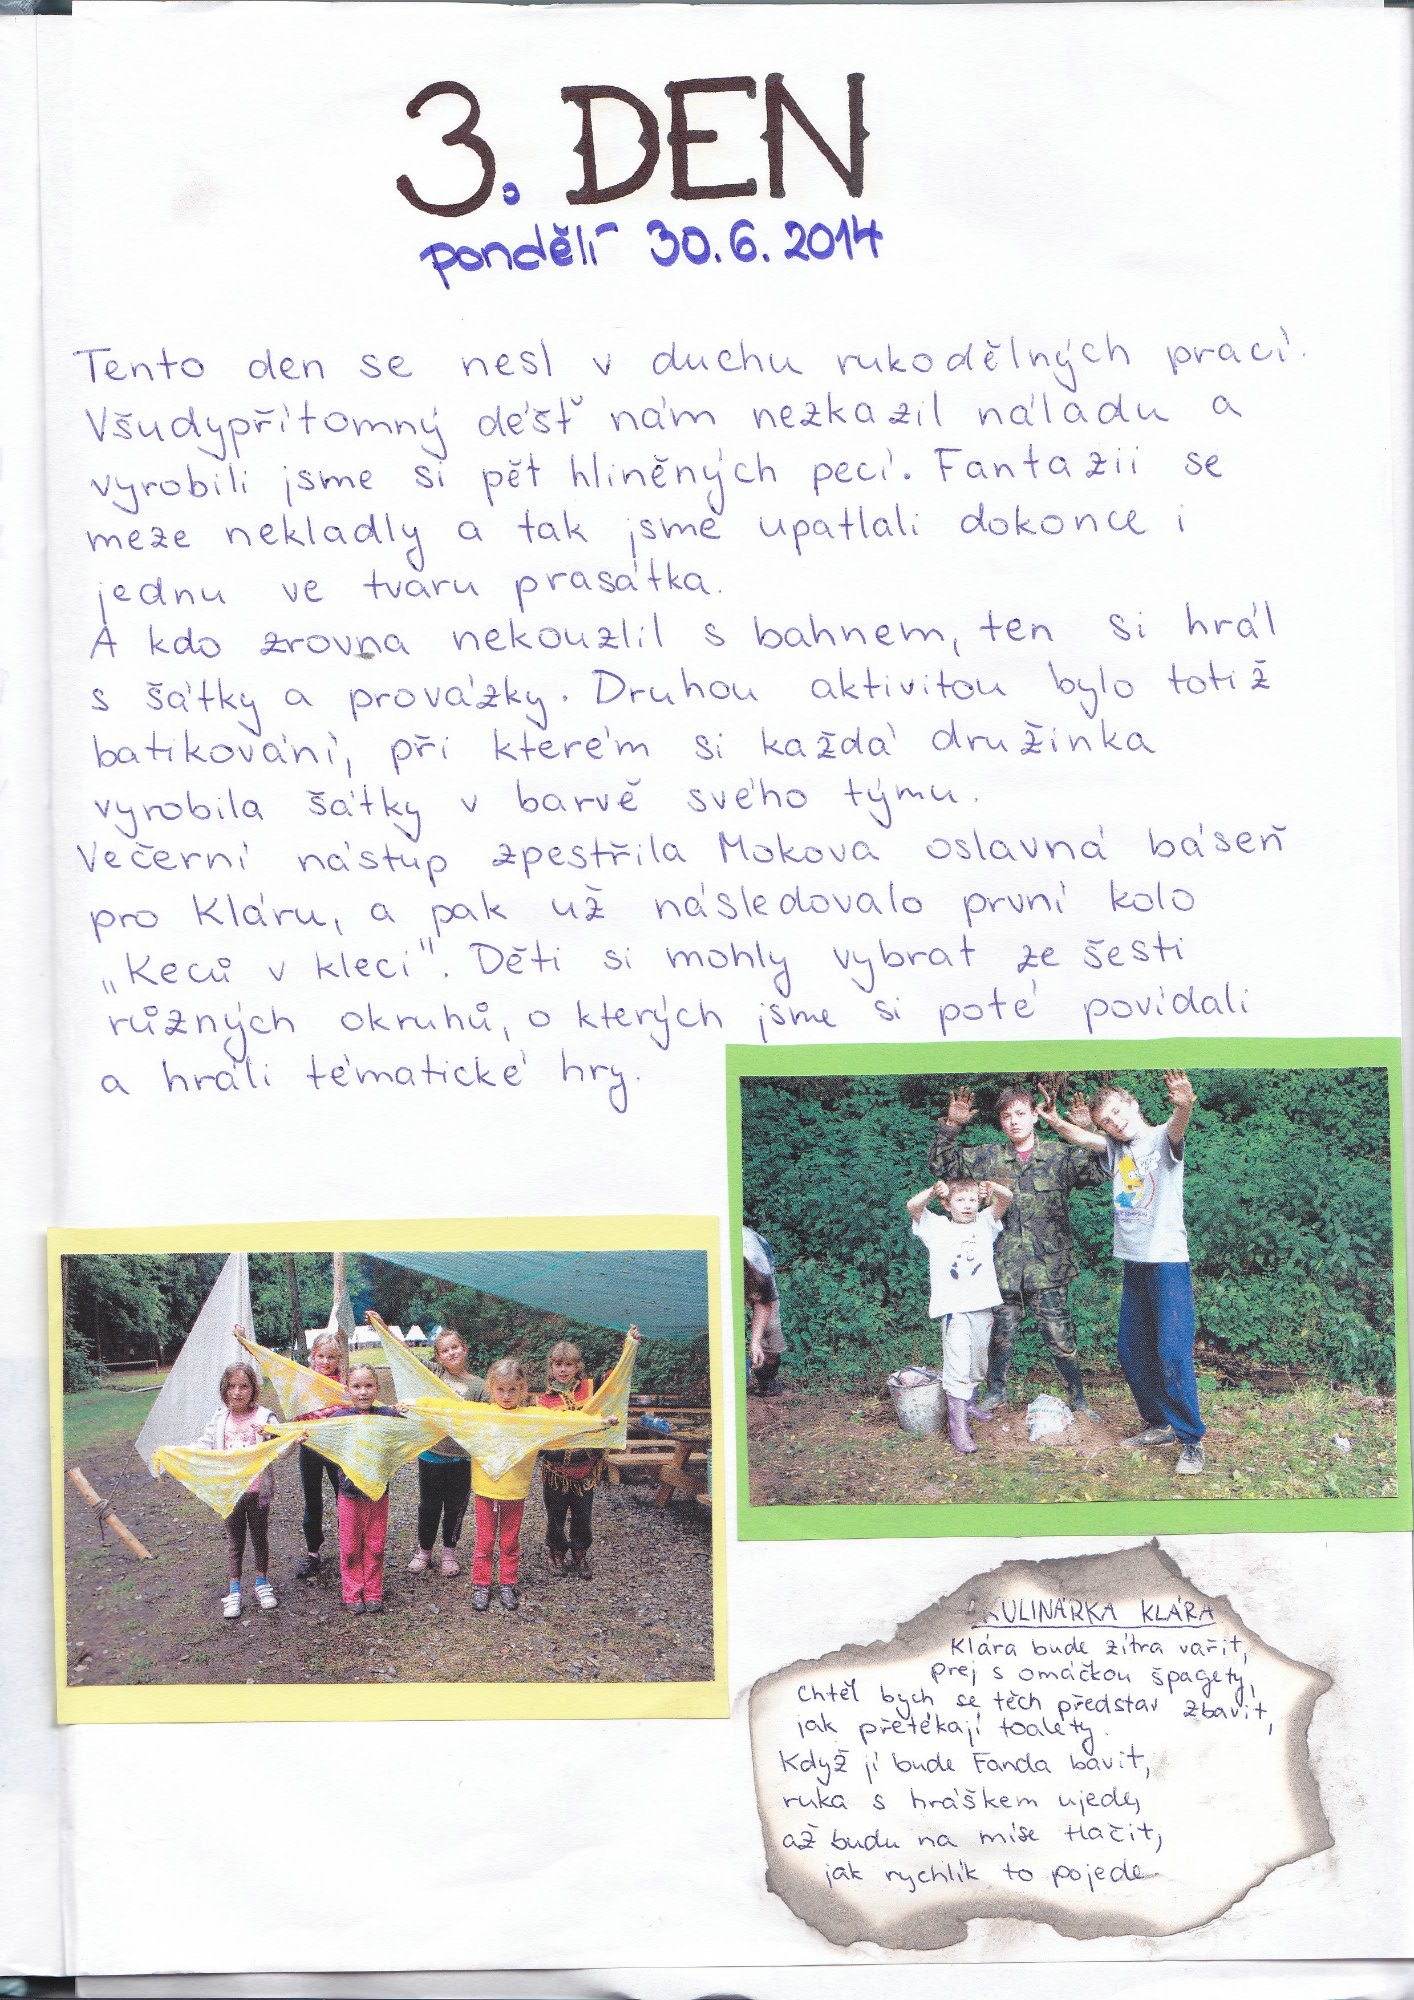 3. DEN
pondělí 30.6.2014
Tento den se nesl v duchu rukodělných prací.
Všudypřítomný déšť nám nezkazil náladu a
vyrobili jsme si pět hliněných pecí. Fantazii se
meze nekladly a tak jsme upatlali dokonce i
jednu ve tvaru prasátka.
A kdo zrovna nekouzlil s bahnem, ten si hrál
s šátky a provázky. Druhou aktivitou bylo totiž
batikování, při kterém si každá družinka
vyrobila šátky v barvě svého týmu.
Večerní nástup zpestřila Mokova oslavná báseň
pro Kláru, a pak už následovalo první kolo
„Keců v kleci". Děti si mohly vybrat ze šesti
různých okruhů, o kterých jsme si poté povídali
a hráli tématické hry.
KULINÁRKA KLÁRA
Klára bude zítra vařit,
prej s omáčkou špagety,
Chtěl bych se těch představ zbavit,
jak přetékají toalety.
Když jí bude Fanda bavit,
ruka s hráškem ujede,
až budu na míse tlačit,
jak rychlík to pojede.